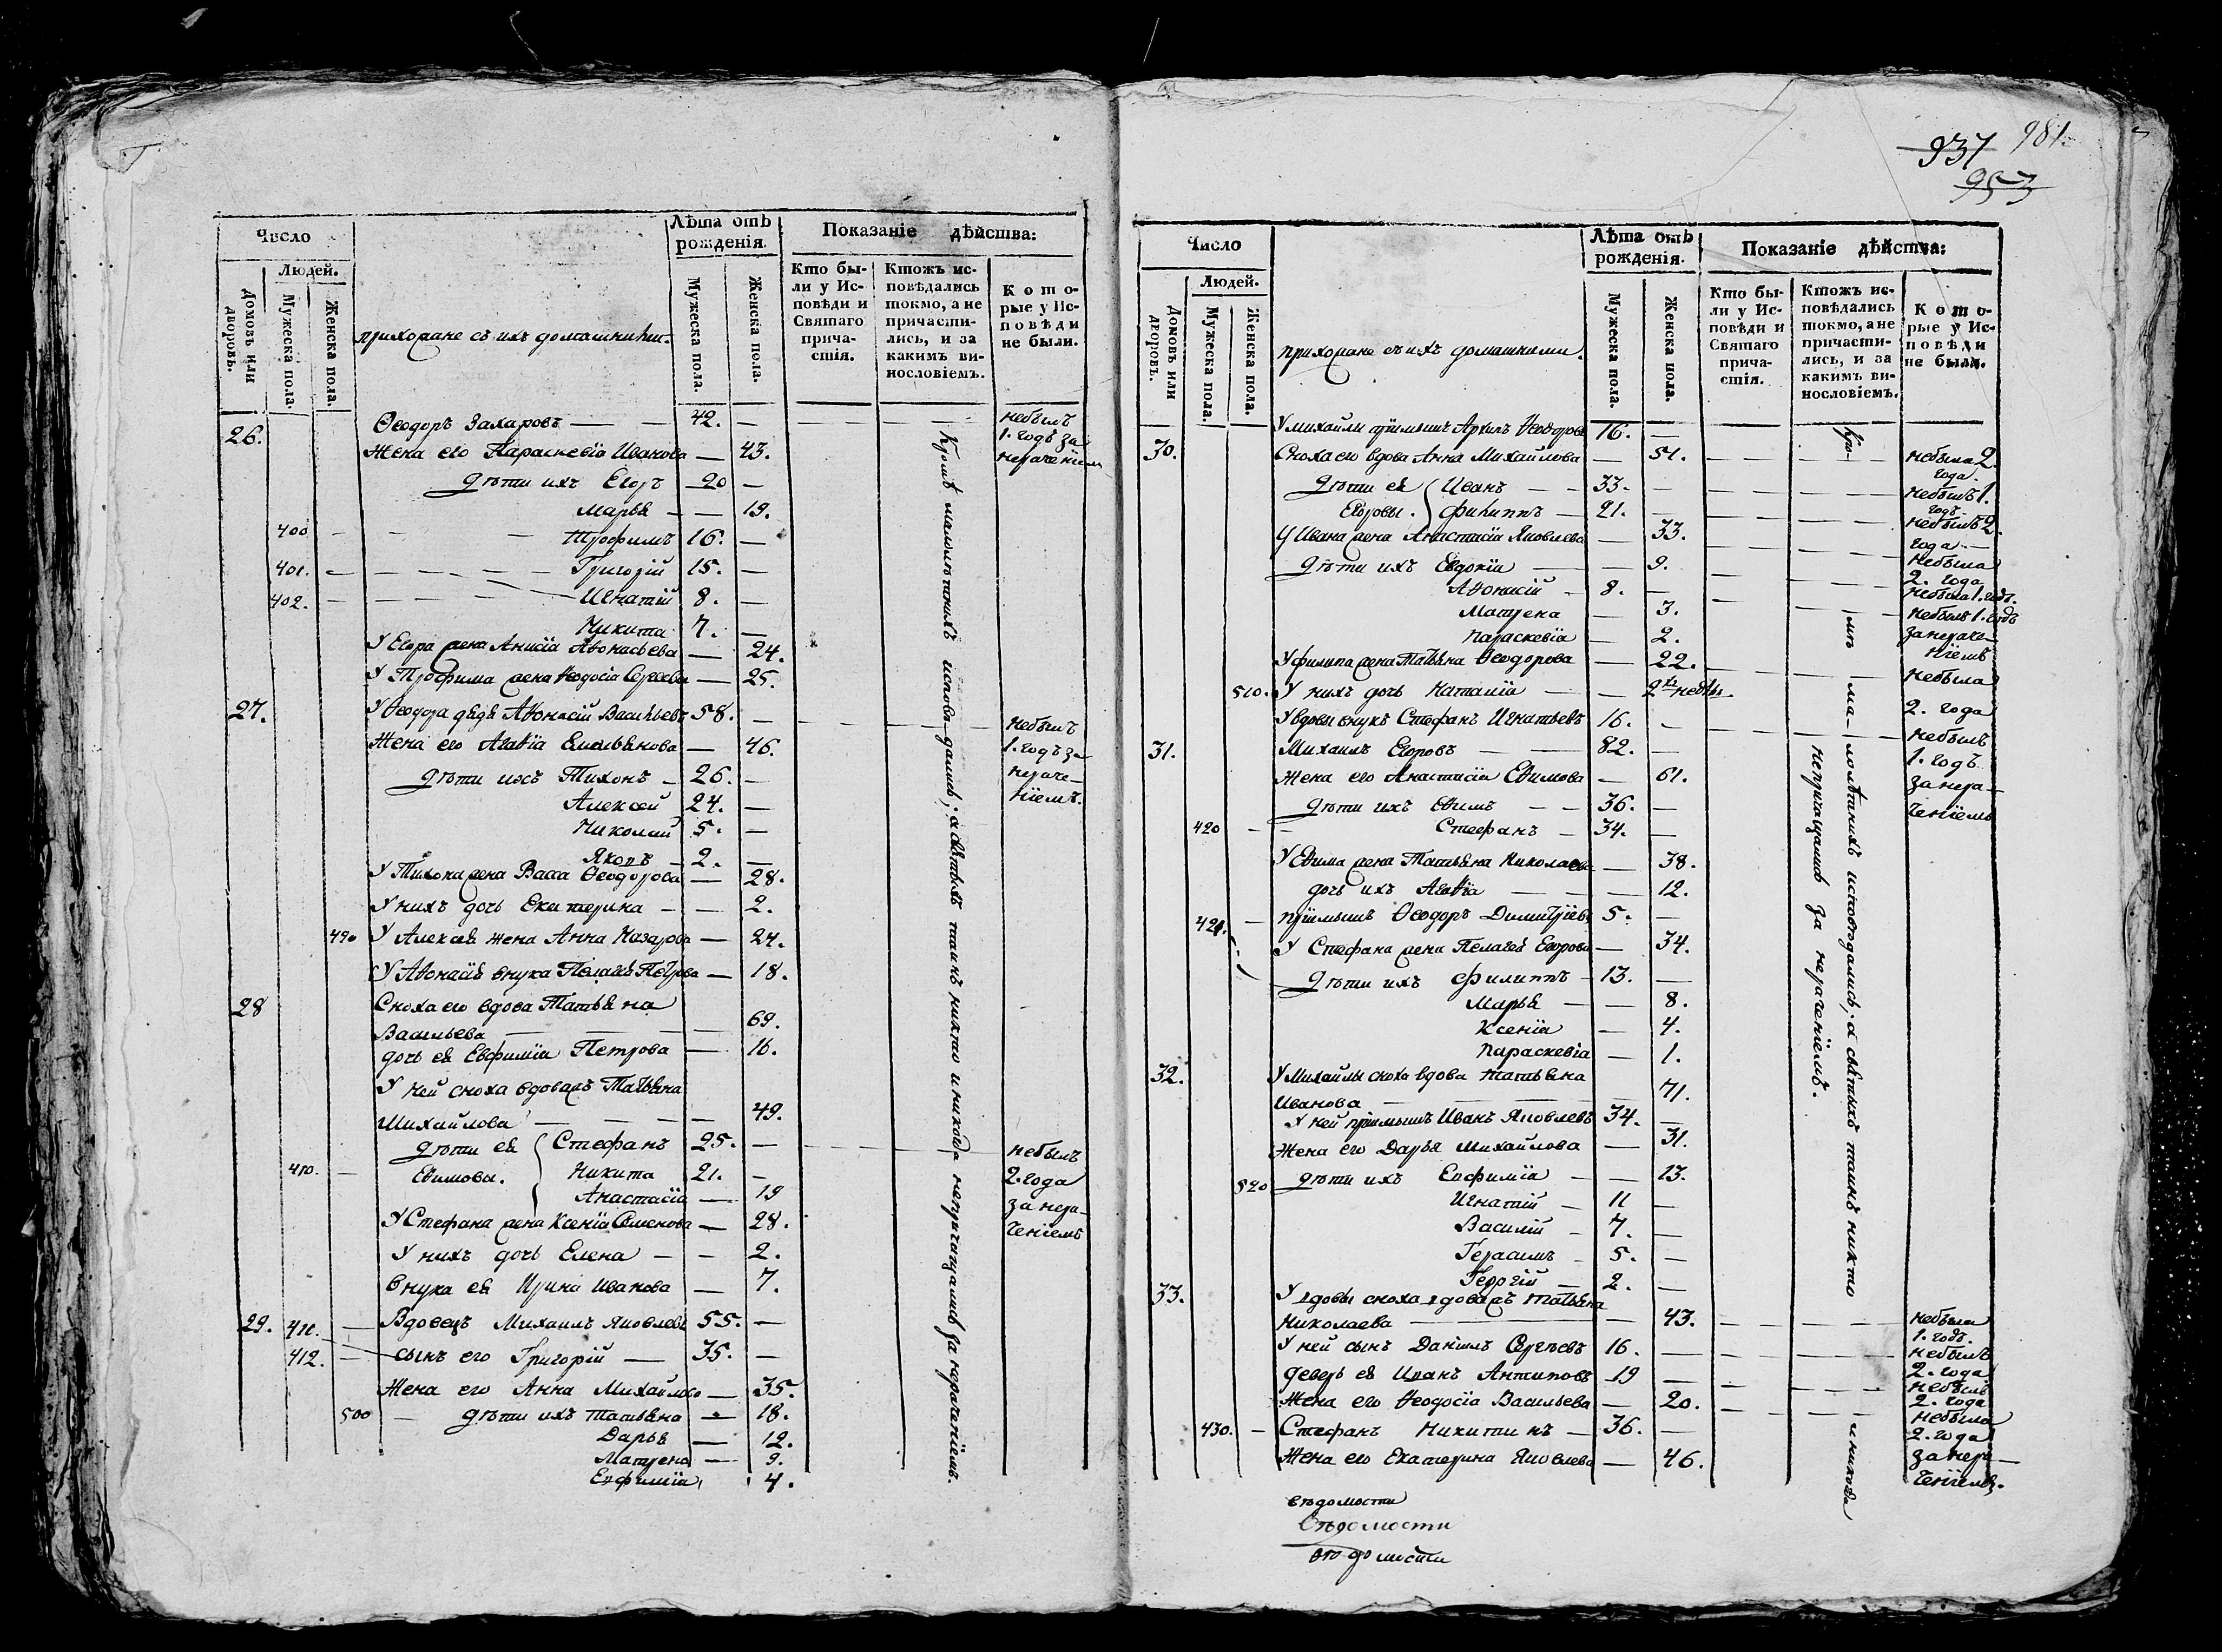 937 981.
953
Число
Людей.
Домовъ или дворовъ.
Мужеска пола.
Женска пола.
прихожане съ ихъ домашними.
Лѣта отъ рожденія.
Мужеска пола.
Женска пола.
Показаніе дѣйства:
Кто были у Исповѣди и Святаго причастія.
Ктожъ исповѣдались токмо, а не причастились, и за какимъ винословіемъ.
Которые у Исповѣди не были.
26. Ѳеодоръ Захаровъ — 42. — небылъ 1. годъ за нераченіемъ
Жена его Параскевіа Иванова — 43.
Дѣти ихъ Егоръ 20 —
Марья — 19.
400 Трофимъ 16. —
401. Григорій 15. —
402. Игнатій 8. —
Никита 7. —
У Егора жена Анисіа Аѳонасьева — 24.
У Трофима жена Ѳеодосіа Сергеева — 25.
27. У Ѳеодора дядя Аѳонасій Васильевъ 58. — небылъ 1. годъ за нераченіемъ.
Жена его Агаѳіа Емельянова — 46.
Дѣти ихъ Тихонъ — 26. —
Алексей 24. —
Николай 5. —
Яковъ — 2. —
У Тихона жена Васса Ѳеодорова — 28.
У нихъ дочь Екатерина — — 2.
490 У Алексея жена Анна Назарова — 24.
У Аѳонасія внука Пелагея Петрова — 18.
28 Сноха его вдова Татьяна
Васильева — 69.
дочь ея Евфиміа Петрова — 16.
У ней сноха вдоважъ Татьяна
Михайлова — 49.
Дѣти ея Стефанъ 25. — небылъ 2. года за нераченіемъ
410. Еѳимовы. Никита 21. —
Анастасіа — 19
У Стефана жена Ксеніа Семенова — 28.
У нихъ дочь Елена — — 2.
Внука ея Ирина Иванова — 7.
29. 411. Вдовецъ Михаилъ Яковлевъ 55. —
412. сынъ его Григорій — 35. —
Жена его Анна Михайлова — 35.
500 — дѣти ихъ Татьяна — 18.
Дарья — 12.
Матрена — 9.
Евфиміа 4.
Кромѣ малолѣтнихъ исповѣдались; а святыхъ таинъ никто и никогда непричащались за нераченіемъ.
Число
Людей.
Домовъ или дворовъ.
Мужеска пола.
Женска пола.
прихожане съ ихъ домашними.
Лѣта отъ рожденія.
Мужеска пола.
Женска пола.
Показаніе дѣйства:
Кто были у Исповѣди и Святаго причастія.
Ктожъ исповѣдались токмо, а не причастились, и за какимъ винословіемъ.
Которые у Исповѣди не были.
У Михайли пріимышъ Архипъ Ѳеодоровъ 16. —
30. Сноха его вдова Анна Михайлова — 51. — небыла 2. года.
Дѣти ея Иванъ — — 33. — небылъ 1. годъ.
Егоровы. Филиппъ — 21. — небылъ 2. года —
У Ивана жена Анастасіа Яковлева — 33. небыла 2. года
Дѣти ихъ Евдокіа — — 9. небыла 1. годъ.
Аѳонасій — 8. — небылъ 1. годъ за нераченіемъ
Матрена — 3.
Параскевіа — 2.
У Филипа жена Татьяна Ѳеодорова — 22. небыла 2. года
510. У нихъ дочь Наталіа — — 2хъ недѣл.
У вдовы внукъ Стефанъ Игнатьевъ 16. — небылъ 1. годъ за нераченіемъ
31. Михаилъ Егоровъ — 82. —
Жена его Анастасіа Еѳимова — 61.
Дѣти ихъ Еѳимъ — — 36. —
420 — Стефанъ — 34. —
У Еѳима жена Татьяна Николаева — 38.
дочь ихъ Агаѳіа — — 12.
421. — пріимышъ Ѳеодоръ Димитріевъ 5. —
У Стефана жена Пелагея Егорова — 34.
Дѣти ихъ Филиппъ — 13. —
Марья — 8.
Ксеніа — 4.
Параскевіа — 1.
32. У Михайлы сноха вдова Татьяна
Иванова — 71.
У ней пріимышъ Иванъ Яковлевъ 34. —
Жена его Дарья Михайлова — 31.
520 дѣти ихъ Евфиміа — — 13.
Игнатій — 11 —
Василій — 7. —
Герасимъ — 5. —
Георгій — 2. —
33. У вдовы сноха вдоважъ Татьяна
Николаева — 43. — небыла 1. годъ.
У ней сынъ Даніилъ Сергѣевъ 16. — небылъ 2. года
деверь ея Иванъ Антиповъ 19 — небылъ 2. года
Жена его Ѳеодосіа Васильева — 20. — небыла 2. года за нераченіемъ.
430. — Стефанъ Никитинъ — 36. —
Жена его Екатерина Яковлева — 46.
Кромѣ малолѣтнихъ исповѣдались; а святыхъ таинъ никто и никогда
непричащались за нераченіемъ.
вѣдомости
Вѣдомости
вѣдомости